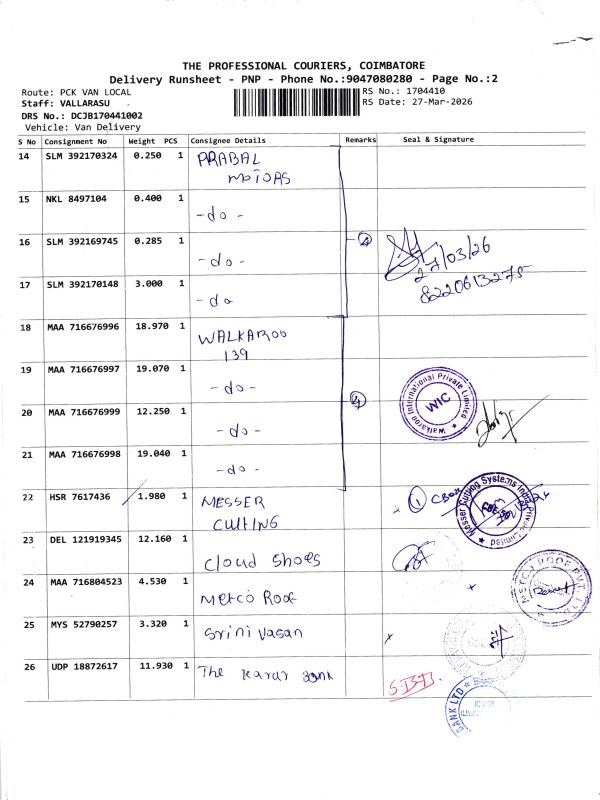 THE PROFESSIONAL COURIERS, COIMBATORE
Delivery Runsheet - PNP - Phone No.:9047080280 - Page No.:2
Route: PCK VAN LOCAL
RS No.: 1704410
Staff: VALLARASU
RS Date: 27-Mar-2026
DRS No.: DCJB170441002
Vehicle: Van Delivery
S No Consignment No Weight PCS Consignee Details Remarks Seal & Signature
14 SLM 392170324 0.250 1 PRABAL
MOTORS
15 NKL 8497104 0.400 1 -do-
16 SLM 392169745 0.285 1 -do- 4
27/03/26
8220613275
17 SLM 392170148 3.000 1 -do
18 MAA 716676996 18.970 1 WALKAROO
139
19 MAA 716676997 19.070 1 -do-
Walkaroo International Private Limited
WIC
20 MAA 716676999 12.250 1 -do- 4
21 MAA 716676998 19.040 1 -do-
22 HSR 7617436 1.980 1 MESSER
CUTTING
1
Messer Cutting Systems India Private Limited
23 DEL 121919345 12.160 1 Cloud Shoes
24 MAA 716804523 4.530 1 Metco Roof
METCO ROOF PVT. LTD
25 MYS 52790257 3.320 1 Srinivasan
26 UDP 18872617 11.930 1 The Karur Bank
S.B.B.
BANK LTD